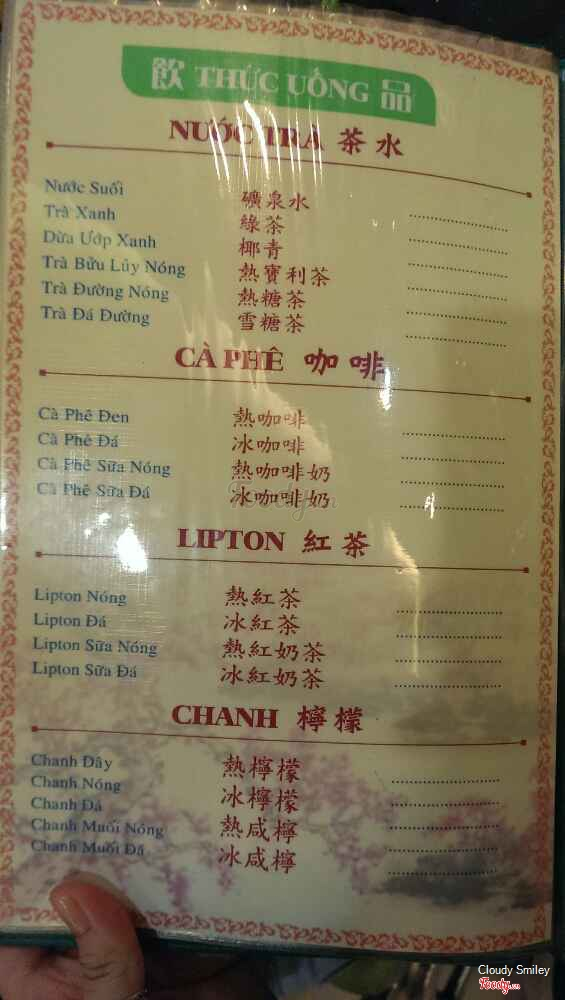 飲 THỨC UỐNG 品
NƯỚC TRÀ 茶水
Nước Suối 礦泉水
Trà Xanh 綠茶
Dừa Ướp Xanh 椰青
Trà Bửu Lủy Nóng 熱寶利茶
Trà Đường Nóng 熱糖茶
Trà Đá Đường 雪糖茶
CÀ PHÊ 咖啡
Cà Phê Đen 熱咖啡
Cà Phê Đá 冰咖啡
Cà Phê Sữa Nóng 熱咖啡奶
Cà Phê Sữa Đá 冰咖啡奶
LIPTON 紅茶
Lipton Nóng 熱紅茶
Lipton Đá 冰紅茶
Lipton Sữa Nóng 熱紅奶茶
Lipton Sữa Đá 冰紅奶茶
CHANH 檸檬
Chanh Dây
Chanh Nóng 熱檸檬
Chanh Đá 冰檸檬
Chanh Muối Nóng 熱咸檸
Chanh Muối Đá 冰咸檸
Cloudy Smiley
Foody.vn